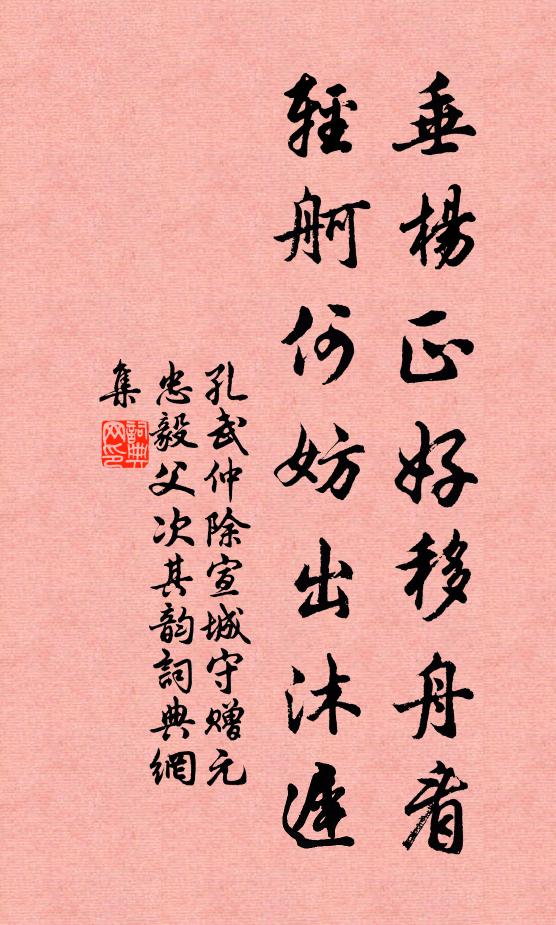 垂楊正好移舟看
輕舸何妨出沐遲
孔武仲除宣城守贈元
忠毅父次其韵詞典網
集
詞典网印